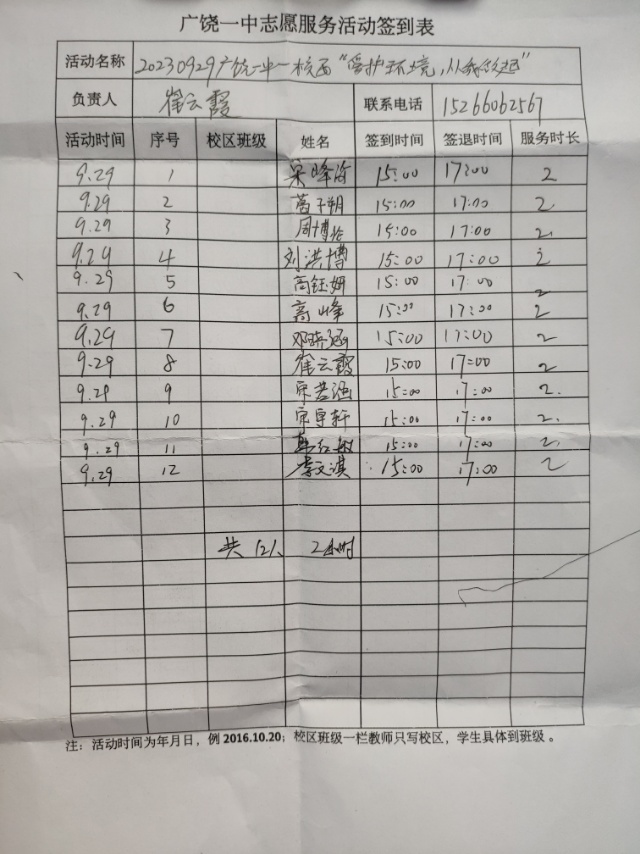 广饶一中志愿服务活动签到表
活动名称 20230929广饶一中一校区“爱护环境,从我做起”
负责人 崔云霞 联系电话 15266062567
活动时间 序号 校区班级 姓名 签到时间 签退时间 服务时长
9.29 1 15:00 17:00 2
9.29 2 15:00 17:00 2
9.29 3 周博 15:00 17:00 2
9.29 4 刘洪博 15:00 17:00 2
9.29 5 高钰妍 15:00 17:00 2
9.29 6 高峰 15:00 17:00 2
9.29 7 邓 涵 15:00 17:00 2
9.29 8 崔云霞 15:00 17:00 2
9.29 9 宋 涵 15:00 17:00 2.
9.29 10 宋 轩 15:00 17:00 2.
9.29 11 15:00 17:00 2.
9.29 12 李文淇 15:00 17:00 2
共12人 2小时
注：活动时间为年月日，例 2016.10.20；校区班级一栏教师只写校区，学生具体到班级。